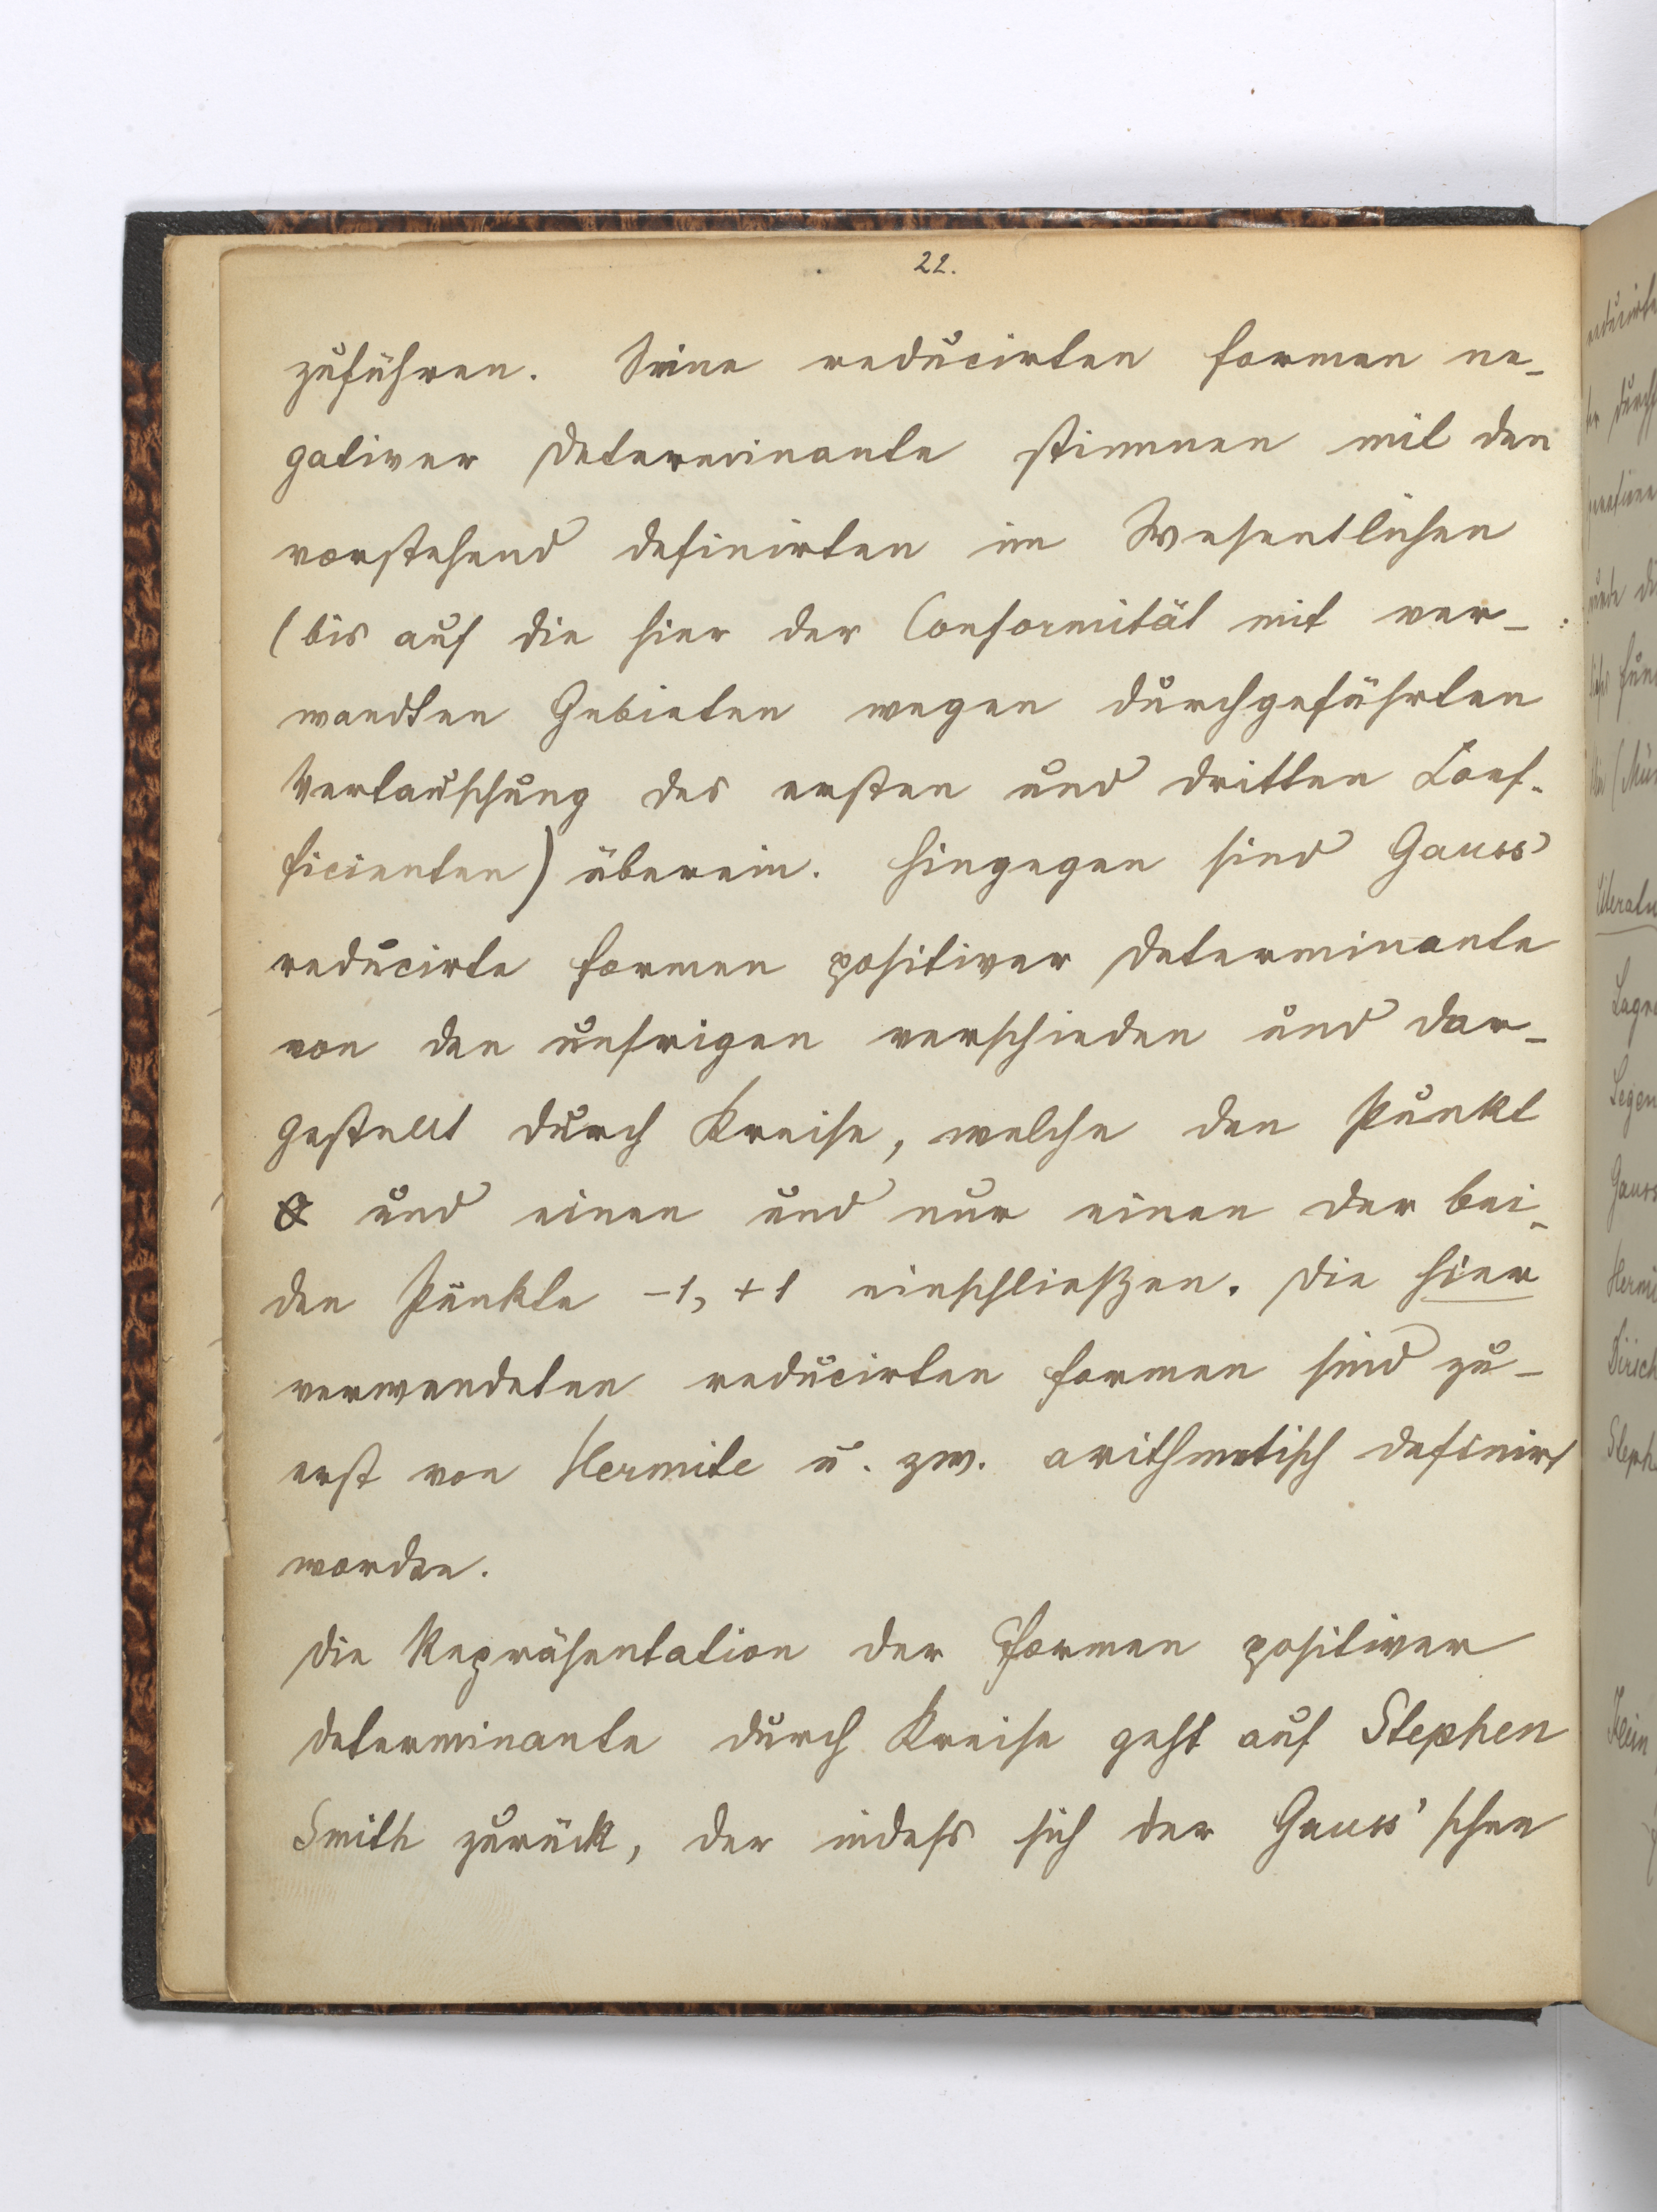 22.
zuführen. Seine reducirten Formen ne-
gativer Determinante stimmen mit den
vorstehend definirten im Wesentlichen
(bis auf die hier der Conformität mit ver-
wandten Gebieten wegen durchgeführten
Vertauschung des ersten und dritten Coef-
ficienten) überein. Hingegen sind Gauss'
reducirte Formen positiver Determinante
von den unsrigen verschieden und dar-
gestellt durch Kreise, welche den Punkt
0 und einen und nur einen der bei-
den Punkte -1, +1 einschließen. Die hier
verwendeten reducirten Formen sind zu-
erst von Hermite u. zw. arithmetisch definirt
worden.
Die Repräsentation der Formen positiver
Determinante durch Kreise geht auf Stephen
Smith zurück, der indess sich der Gauss'schen